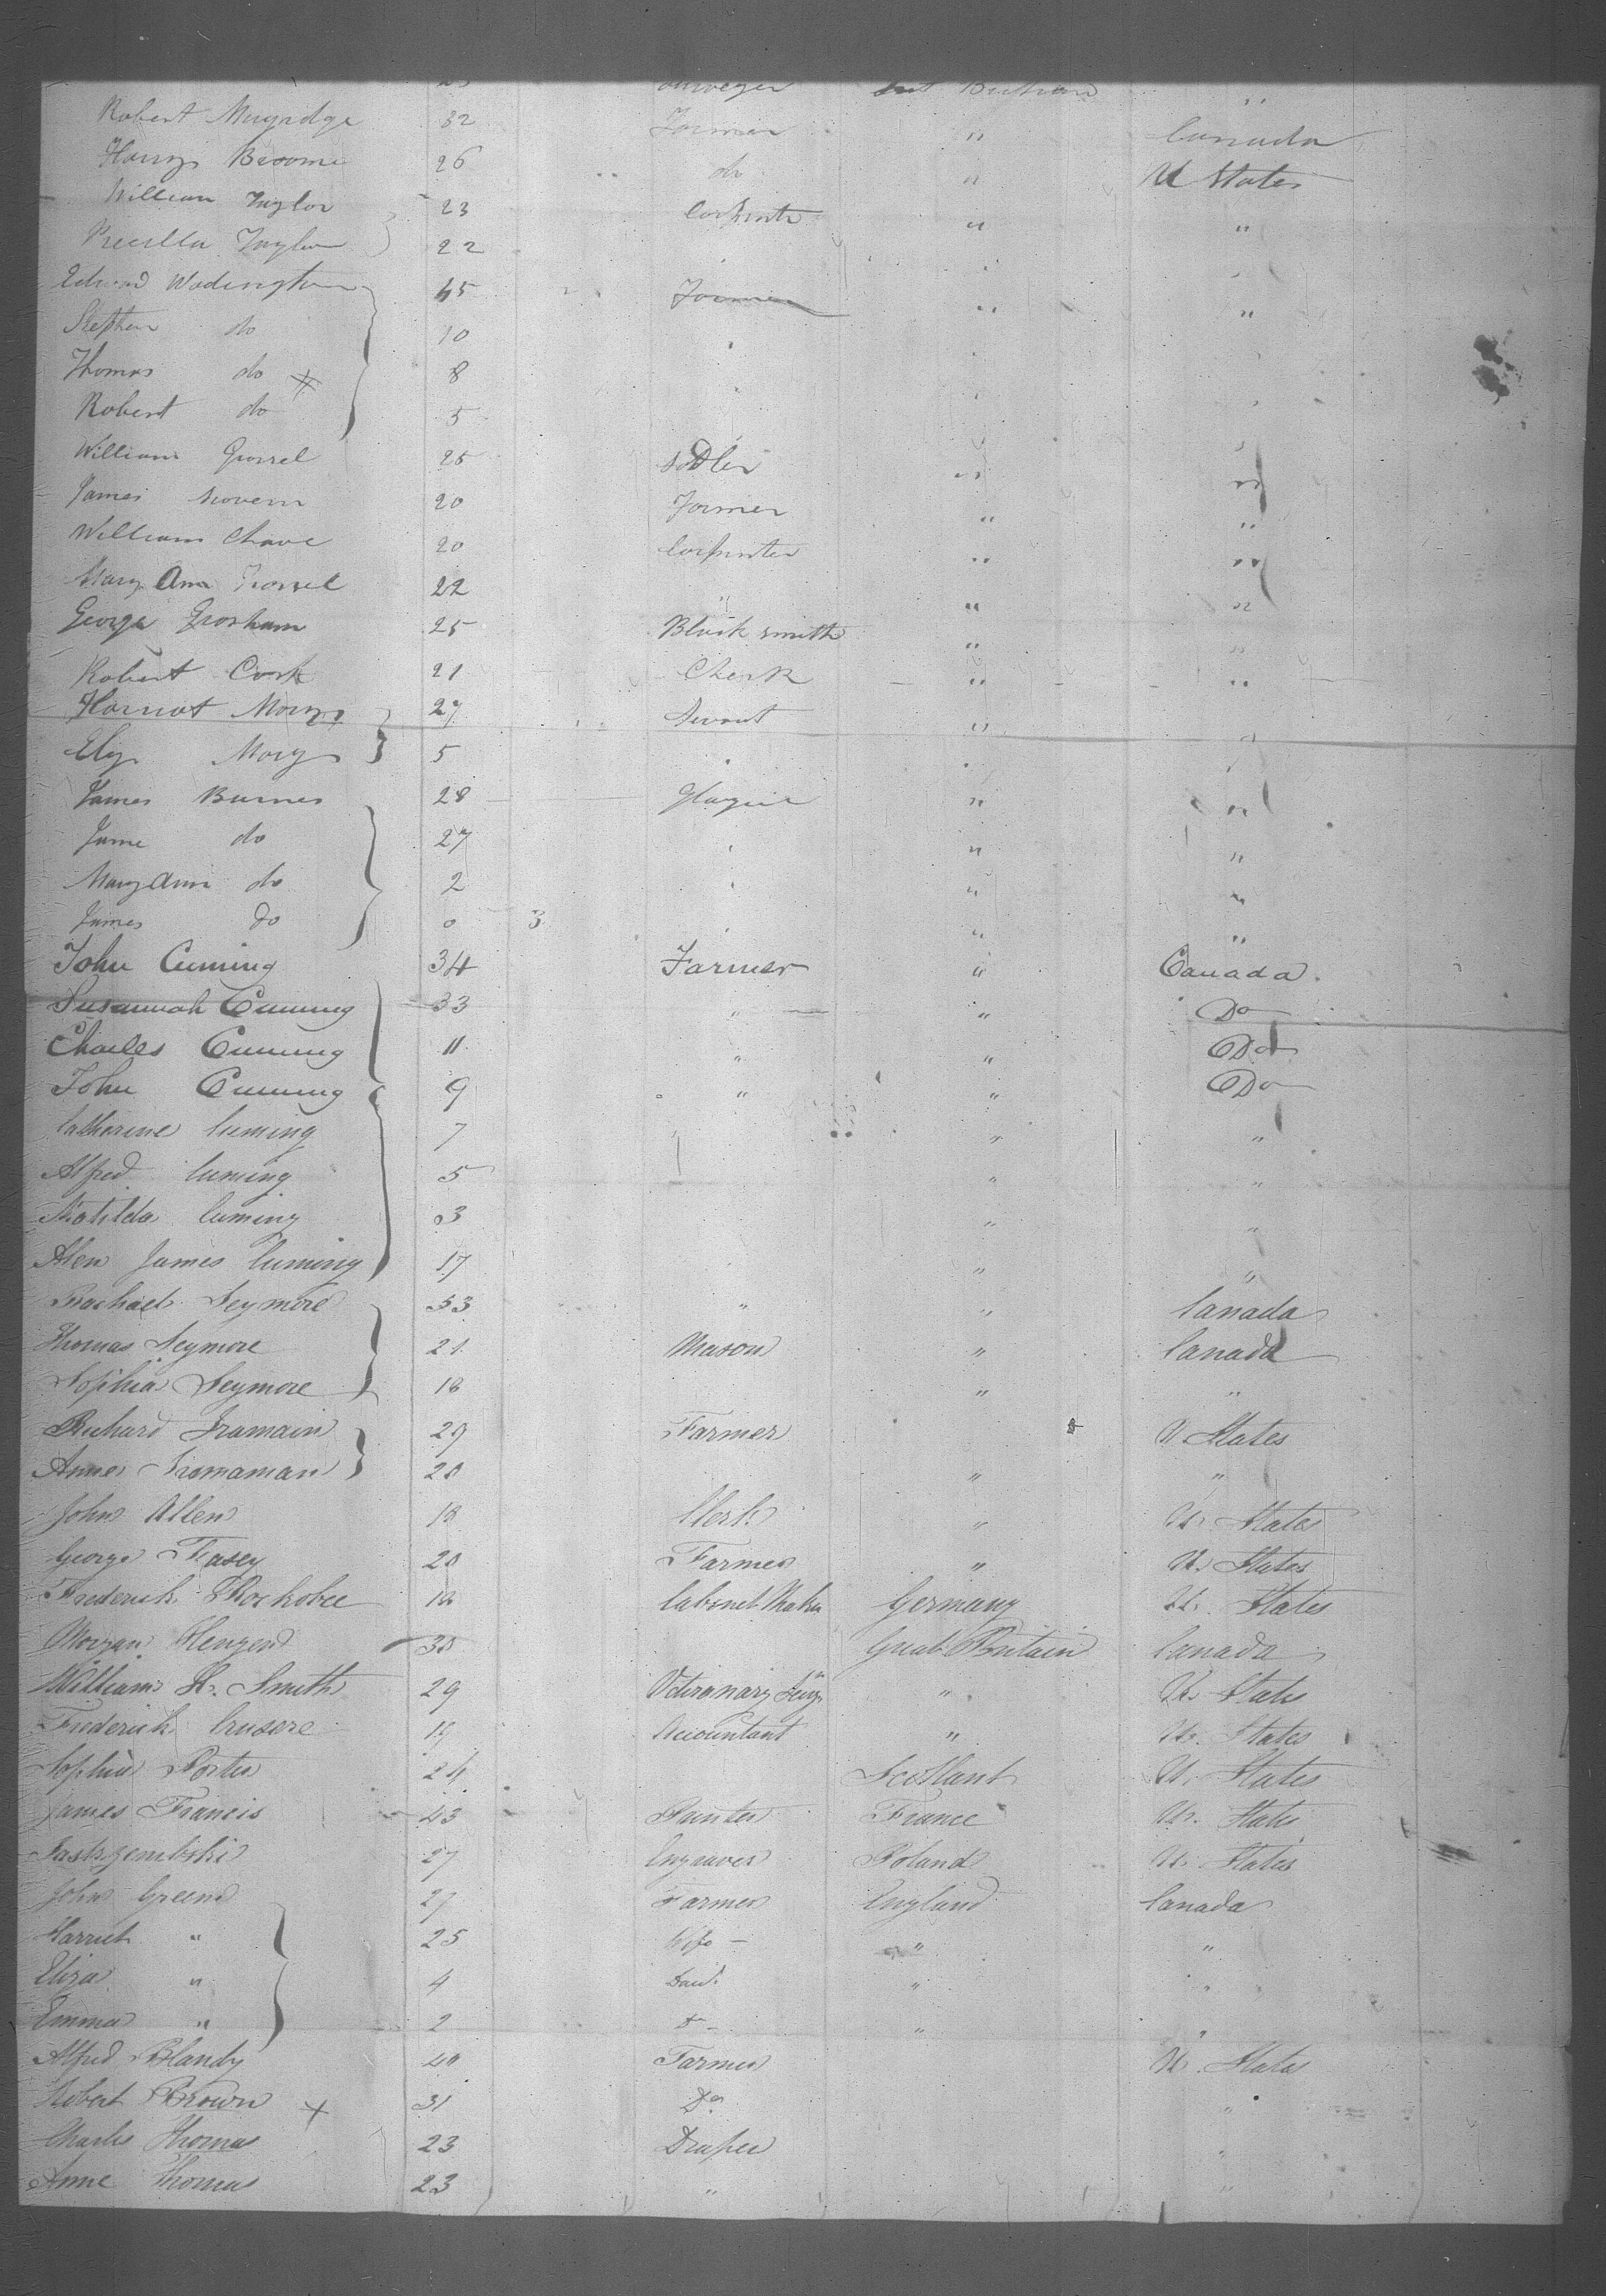 Robert Mugridge 32 Farmer " Canada
Harry Broome 26 do " U States
William Taylor 23 Carpenter " "
Precilla Taylor 22
Edward Wadington 45 Farmer " "
Stephen do 10
Thomas do 8
Robert do 5
William Gorrel 25 " "
James 20 Farmer " "
William Chave 20 Carpenter " "
Mary Ann 22 " " "
George Grosham 25 Black smith " "
Robert Cook 21 Clerk " "
Harriot 27 Servant " "
5
James Burnes 28 Glazier " "
Jame do 27 " "
Mary Ann do 2 " "
James do 0 3 " "
John Cuming 34 Farmer " Canada
Susannah Cuming 33 " " Do
Charles Cuming 11 " " Do
John Cuming 9 " " Do
Catharine Cuming 7 " " "
Alfred Cuming 5 " "
Matilda Cuming 3 " "
Alen James Cuming 17 " "
Rachael Seymore 53 " " Canada
Thomas Seymore 21 Mason " Canada
Sophia Seymore 18 " "
Richard 29 Farmer U States
Anne 20 " "
John Allen 18 Clerk " U. States
George Feasey 20 Farmer " U. States
Frederick 18 Cabinet Maker Germany U. States
Morgan 30 Great Britain Canada
William H. Smith 29 Vetironary Surgn " U. States
Frederick Crusore 19 Accountant " U. States
Sophia Porter 24 Scotland U. States
James Francis 43 Painter France U. States
27 Engraver Poland U. States
John Green 27 Farmer England Canada
Harriet " 25 Wife " "
Eliza " 4 Daur " "
Emma " 2 Do " "
Alfred Blandy 40 Farmer U. States
Robert Brown 31 Do "
Charles Thomas 23 Draper "
Anne Thomas 23 " "